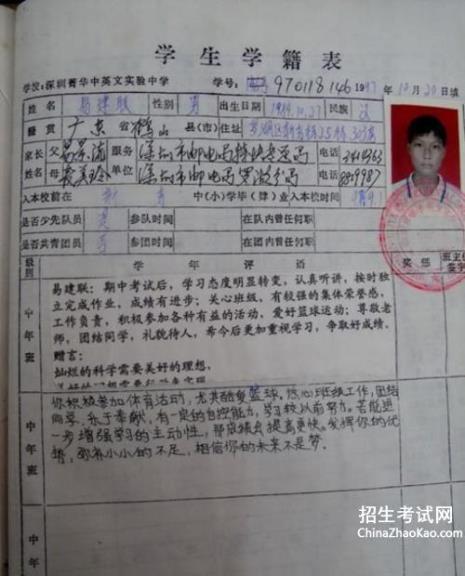 学生学籍表
学校:深圳菁华中英文实验中学 学号: 970118146 1997年10月20日填
姓名 易建联 性别 男 出生日期 1984.10.27 民族 汉
籍贯 广东省鹤山县(市) 住址
家长姓名 父 服务单位 深圳市邮电局 电话
母 深圳市邮电局罗湖分局 电话
入本校前在 中(小)学毕(肄)业 入本校时间
是否少先队员 参队时间 在队内曾任何职
是否共青团员 否 参团时间 在团内曾任何职
级别 学年评语 奖惩 班主任签字
中年班
易建联:期中考试后,学习态度明显转变,认真听讲,按时独
立完成作业,成绩有进步;关心班级,有较强的集体荣誉感,
工作负责,积极参加各种有益的活动,爱好篮球运动;尊敬老
师,团结同学,礼貌待人,希今后更加重视学习,争取好成绩。
赠言:
灿烂的科学需要美好的理想,
中年班
你积极参加体育活动,尤其酷爱篮球,热心班级工作,团结
同学,乐于奉献,有一定的自控能力,学习较以前努力。若能进
一步增强学习的主动性,那成绩会提高更快。发挥你的优
势,弥补小小的不足,相信你的未来不是梦。
中年
招生考试网
ChinaZhaoKao.com